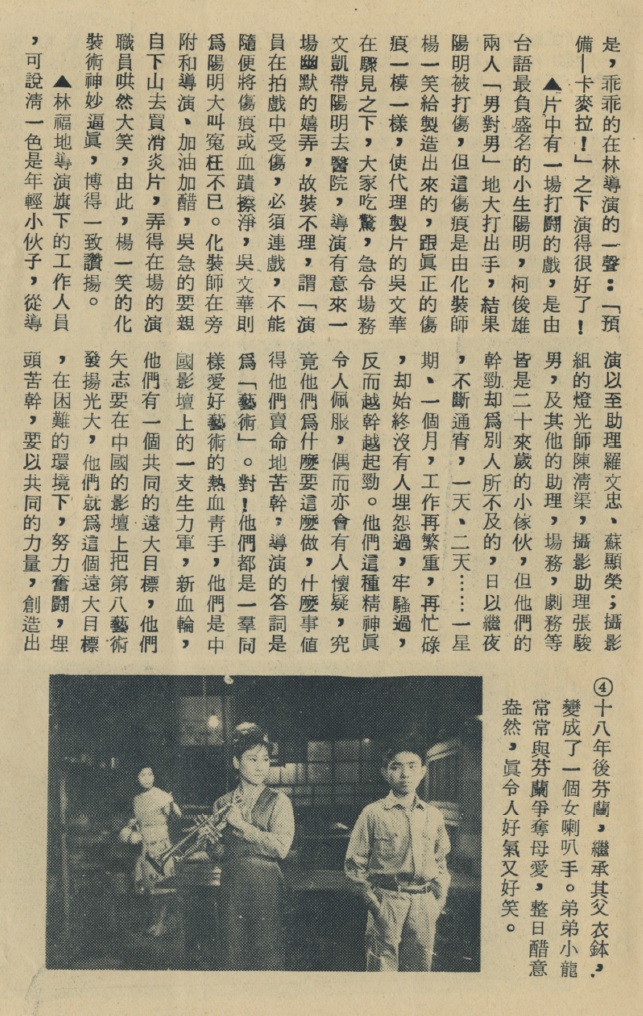 是，乖乖的在林導演的一聲：「預
備—卡麥拉！」之下演得很好了！
▲片中有一場打鬪的戲，是由
台語最負盛名的小生陽明，柯俊雄
兩人「男對男」地大打出手，結果
陽明被打傷，但這傷痕是由化裝師
楊一笑給製造出來的，跟眞正的傷
痕一模一樣，使代理製片的吳文華
在驟見之下，大家吃驚，急令場務
文凱帶陽明去醫院，導演有意來一
場幽默的嬉弄，故裝不理，謂「演
員在拍戲中受傷，必須連戲，不能
隨便將傷痕或血蹟擦淨，吳文華則
爲陽明大叫寃枉不已。化裝師在旁
附和導演、加油加醋，吳急的要親
自下山去買消炎片，弄得在場的演
職員哄然大笑，由此，楊一笑的化
裝術神妙逼眞，博得一致讚揚。
▲林福地導演旗下的工作人員
，可說淸一色是年輕小伙子，從導
演以至助理羅文忠、蘇顯榮；攝影
組的燈光師陳淸渠，攝影助理張駿
男，及其他的助理，場務，劇務等
皆是二十來歲的小傢伙，但他們的
幹勁却爲別人所不及的，日以繼夜
，不斷通宵，一天、二天……一星
期、一個月，工作再繁重，再忙碌
，却始終沒有人埋怨過，牢騷過，
反而越幹越起勁。他們這種精神眞
令人佩服，偶而亦會有人懷疑，究
竟他們爲什麼要這麼做，什麼事値
得他們賣命地苦幹，導演的答詞是
爲「藝術」。對！他們都是一羣同
樣愛好藝術的熱血靑手，他們是中
國影壇上的一支生力軍，新血輪，
他們有一個共同的遠大目標，他們
矢志要在中國的影壇上把第八藝術
發揚光大，他們就爲這個遠大目標
，在困難的環境下，努力奮鬪，埋
頭苦幹，要以共同的力量，創造出
④十八年後芬蘭，繼承其父衣鉢，
變成了一個女喇叭手。弟弟小龍
常常與芬蘭爭奪母愛，整日醋意
盎然，眞令人好氣又好笑。